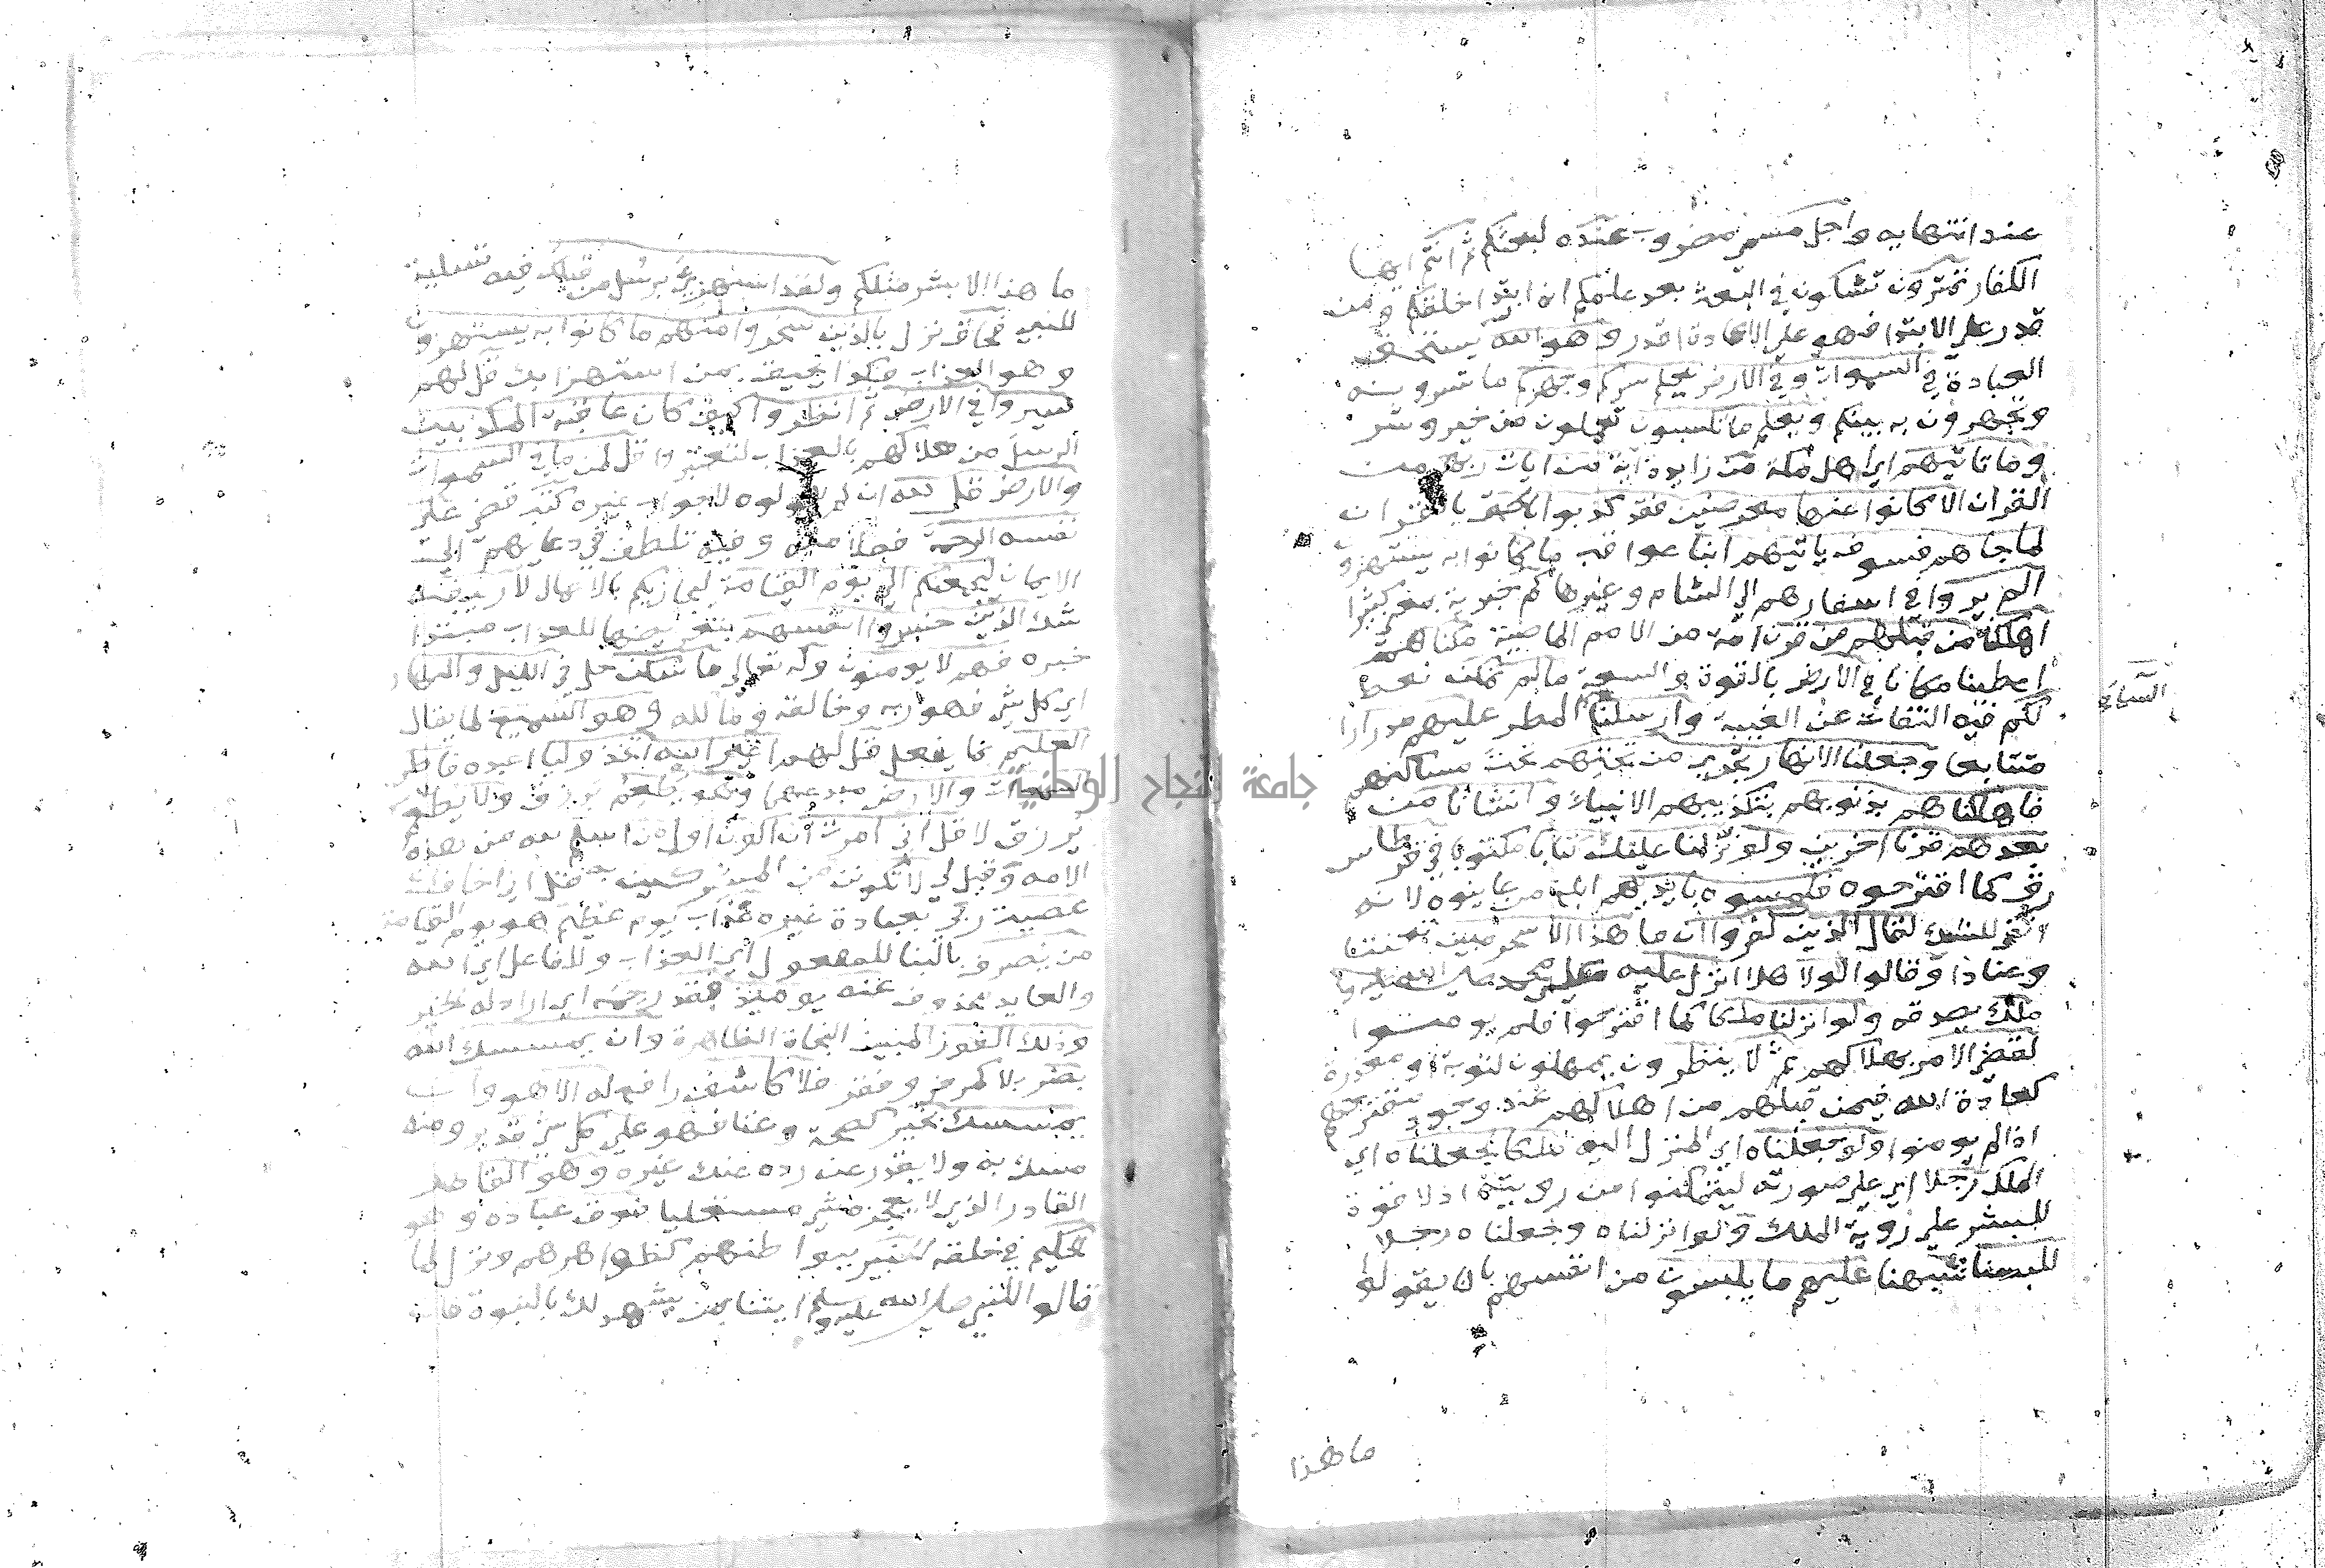 عند انتهايه واجل مسمي مضروب عنده لبعثكم ثم انتم ايها
الكفار تمترون تشكون في البعث بعد علمكم انه ابتدا خلقكم ومن
قدر علي الابتدا فهو علي الاعادة اقدر وهو الله يستحق
العبادة في السموات وفي الارض يعلم سركم وجهركم ما تسرونه
وتجهرون به بينكم ويعلم ما تكسبون تعملون من خير وشر
وما تاتيهم اي اهل مكة من زايدة اية من ايات ربهم من
القران الا كانوا عنها معرضين فقد كذبوا بالحق بالقران
لما جاهم فسوف ياتيهم انبا عواقب ما كانوا به يستهزون
الم يروا في اسفارهم الي الشام وغيرها كم خبرية بمعني كثيرا
اهلكنا من قبلهم من قرن امة من الامم الماضية مكناهم
اعطينا مكانا في الارض بالقوة والسعة ما لم نمكن نعط
لكم فيه التفات عن الغيبة وارسلنا المطر عليهم مدرارا
السماء
متتابعا وجعلنا الانهار تجري من تحتهم تحت مساكنهم
فاهلكناهم بذنوبهم بتكذيبهم الانبياء وانشانا من
بعدهم قرنا اخرين ولو نزلنا عليك كتابا مكتوبا في قرطاس
رق كما اقترحوه فلمسوه بايديهم ابلغ من عاينوه لانه
انفي للشك لقال الذين كفروا ان ما هذا الا سحر مبين تعنتا
وعنادا وقالوا لولا هلا انزل عليه علي محمد صلي الله عليه وسلم
ملك يصدقه ولو انزلنا ملكا كما اقترحوا فلم يومنوا
لقضي الامر بهلاكهم ثم لا ينظرون يمهلون لتوبة او معذرة
كعادة الله فيمن قبلهم من اهلاكهم عند وجود مقترحهم
اذا لم يومنوا ولو جعلناه اي المنزل اليهم ملكا لجعلناه اي
الملك رجلا اي علي صورته ليتمكنوا من رويته اذ لا قوة
للبشر علي روية الملك ولو انزلناه وجعلناه رجلا
للبسنا شبهنا عليهم ما يلبسون من انفسهم بان يقولوا
ما هذا
ما هذا الا بشر مثلكم ولقد استهزئ برسل من قبلك فيه تسلية
للنبي فحاق نزل بالذين سخروا منهم ما كانوا به يستهزون
وهو العذاب فكذا يحيق بمن استهزا بك قل لهم
سيروا في الارض ثم انظروا كيف كان عاقبة المكذبين
الرسل من هلاكهم بالعذاب لتعتبروا قل لمن ما في السموات
والارض قل لله ان لم يقولوه لا جواب غيره كتب قضي علي
نفسه الرحمة فضلا منه وفيه تلطف في دعايهم الي
الايمان ليجمعنكم الي يوم القيامة ليجازيكم بالاعمال لا ريب فيه
شك الذين خسروا انفسهم بتعريضها للعذاب مبتدا
خبره فهم لا يومنون وله تعالي ما سكن حل في الليل والنهار
اي كل شي فهو ربه وخالقه ومالكه وهو السميع لما يقال
العليم بما يفعل قل لهم اغير الله اتخذ وليا اعبده فاطر
السموات والارض مبدعهما وهو يطعم يرزق ولا يطعم
يرزق لا قل اني امرت ان اكون اول من اسلم لله من هذه
الامه وقيل لي لا تكونن من المشركين به قل اني اخاف ان
عصيت ربي بعبادة غيره عذاب يوم عظيم هو يوم القيامة
من يصرف بالبنا للمفعول اي العذاب وللفاعل اي الله
والعايد محذوف عنه يوميذ فقد رحمه اي اراد له الخير
وذلك الفوز المبين النجاة الظاهرة وان يمسسك الله
بضر بلا كمرض وفقر فلا كاشف رافع له الا هو وان
يمسسك بخير كصحة وغنا فهو علي كل شي قدير ومنه
مسك به ولا يقدر عن رده عنك غيره وهو القاهر
القادر الذي لا يعجزه شي مستعليا فوق عباده وهو
الحكيم في خلقه الخبير ببواطنهم كظواهرهم ونزل لما
قالوا للنبي صلي الله عليه وسلم ايتنا بمن يشهد لك بالنبوة فان
جامعة النجاح الوطنية